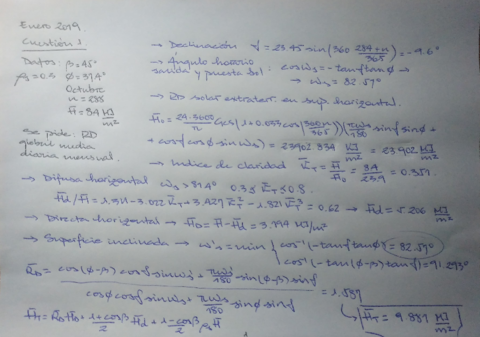 Enero 2019.
Cuestión 1.
Datos: β=45°
ρg=0.5 φ=37.4°
Octubre
n=288
H̄=8.4 MJ/m²
Se pide: RD
global media
diaria mensual.
→ Declinación γ=23.45 sin(360 (284+n)/365)=-9.6°
→ Ángulo horario
salida y puesta sol: cos ωs=-tanγ tanφ ⇒
→ ωs=82.57°
→ RD solar extraterr. en sup. horizontal.
H̄o=(24.3600/π) Gcs(1+0.033 cos(360n/365))(πωs/180 sinγ sinφ+
+cosγ cosφ sin ωs)=23902334 J/m²=23.902 MJ/m²
→ Indice de claridad K̄T=H̄/H̄o=8.4/23.9=0.351.
→ Difusa horizontal ωs>81.4° 0.3≤K̄T≤0.8
H̄d/H̄=1.311-3.022 K̄T+3.427 K̄T²-1.821 K̄T³=0.62 → H̄d=5.206 MJ/m²
→ Directa horizontal → H̄D=H̄-H̄d=3.194 MJ/m²
→ Superficie inclinada → ω's=min { cos⁻¹(-tanγ tanφ)=82.57°
cos⁻¹(-tan(φ-β)tanγ)=91.293°
R̄D=(cos(φ-β)cosγ sin ω's+πω's/180 sin(φ-β)sinγ)/(cosφ cosγ sin ωs+πωs/180 sinφ sinγ)=1.887
H̄T=R̄D H̄D+(1+cosβ)/2 H̄d+(1-cosβ)/2 ρg H̄
↳ H̄T=9.887 MJ/m²